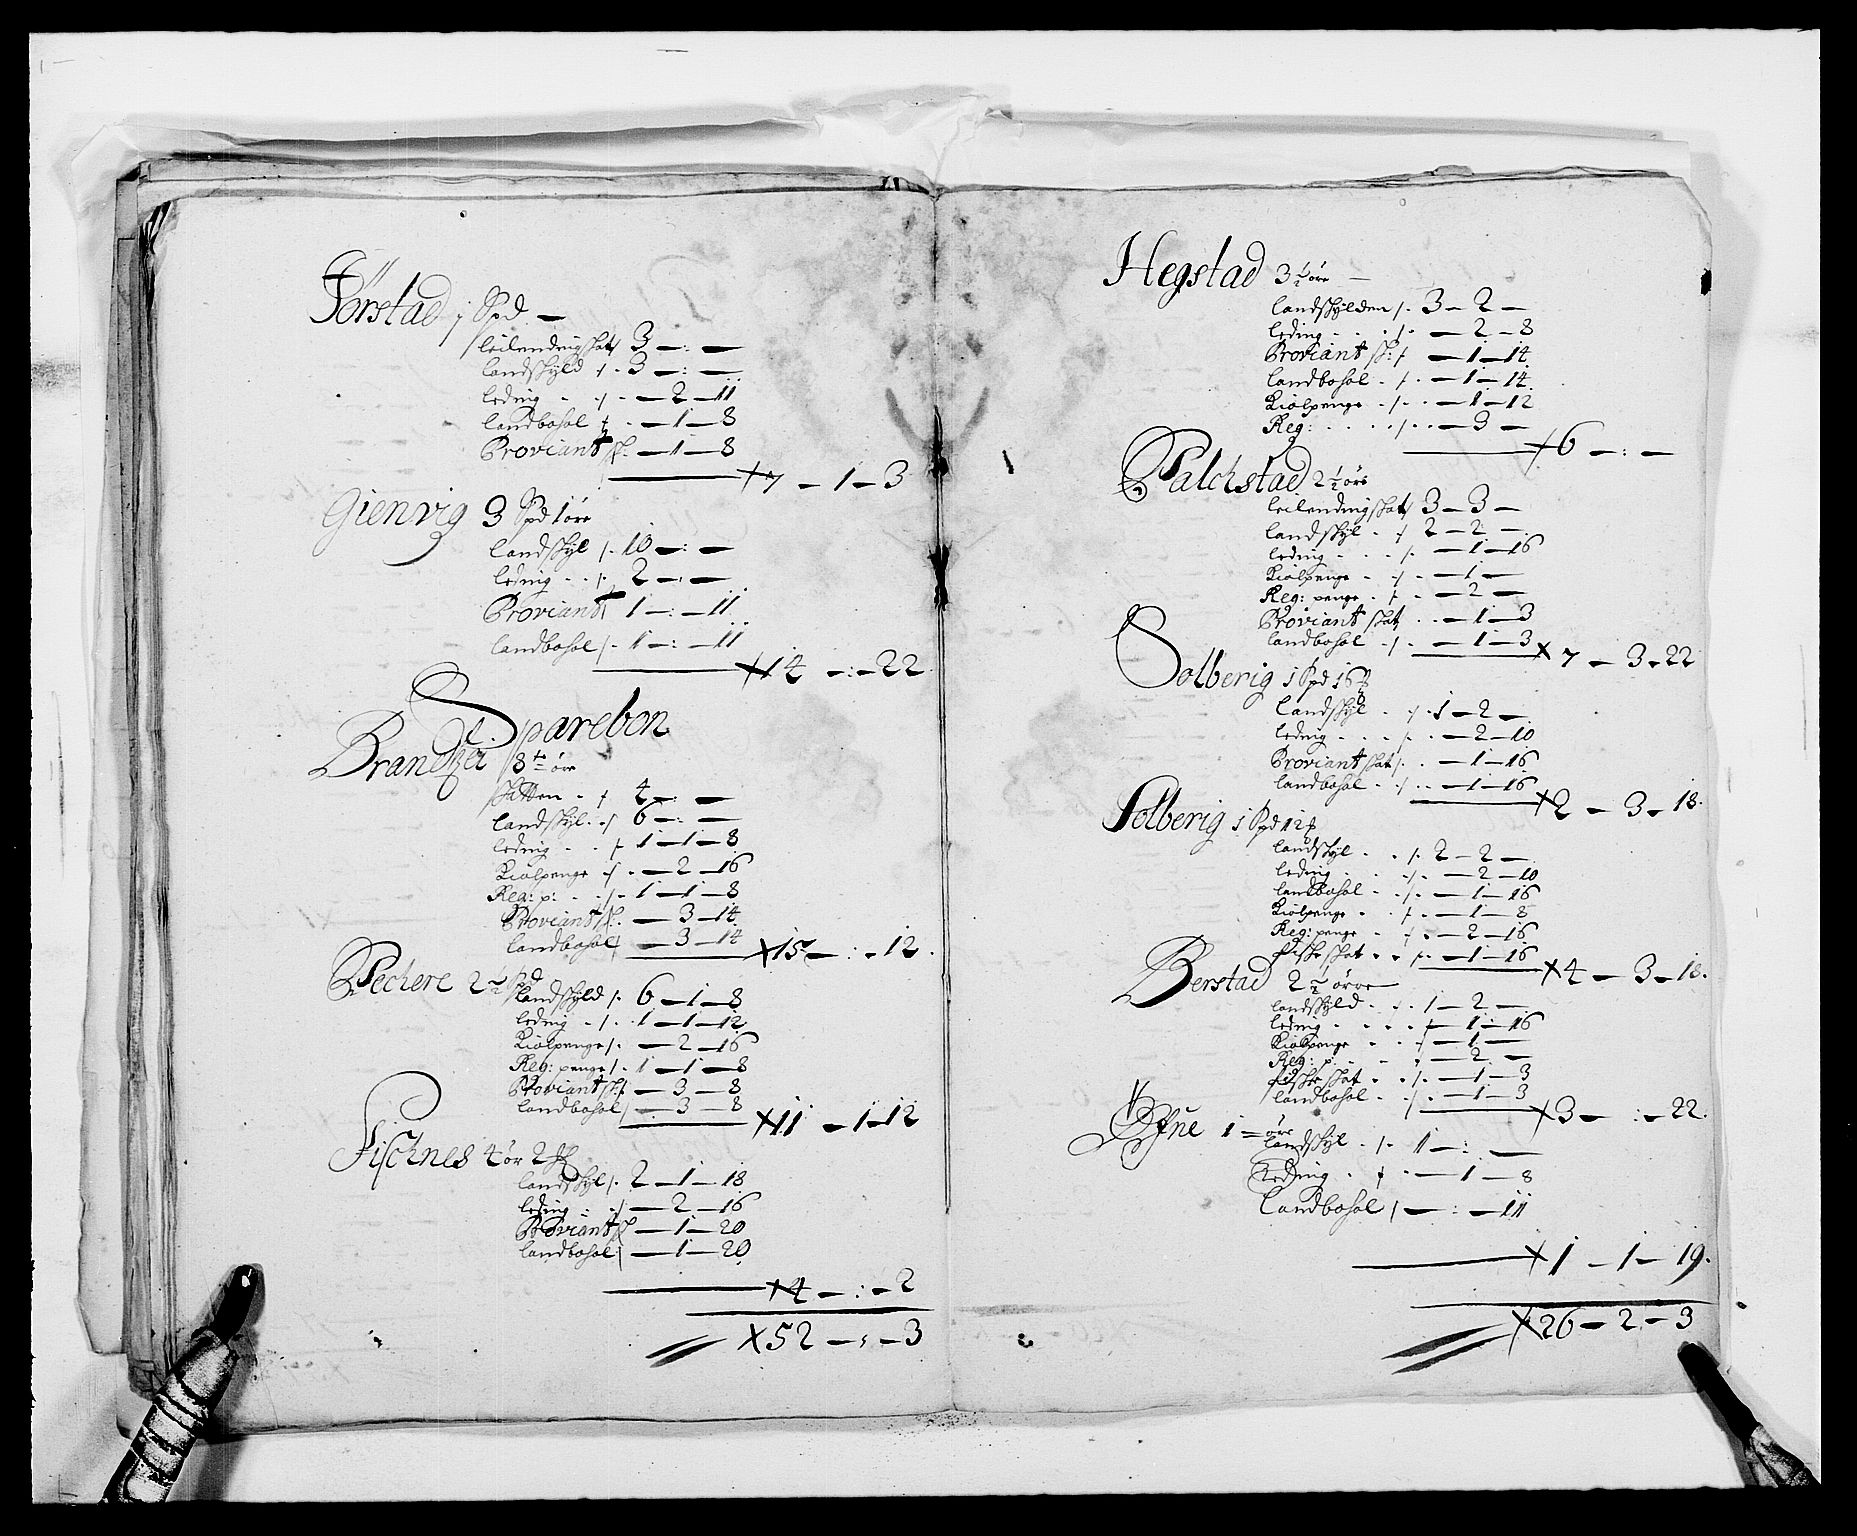 Førstad j Spd —
leilendingskat 3 — : —
landskyld /. 3 — : —
leding . ./. — 2 — 11
landbohol . — 1 — 8
Proviant sk. — 1 — 8
7 — 1 — 3
Gienvig 3 Spd 1 øre
landskyl /. 10 — : —
leding . . /. 2 — : —
Proviant 1 — : — 11
landbohol /. 1 — : — 11
14 — : — 22
Sparebon
8 øre
skatten . 4 — : —
landskyl . ./ 6 — : —
leding . . 1 — 1 — 8
Kiølpenge ./ . — 2 — 16
Reg: p: . ./. 1 — 1 — 8
Proviant sk. — 3 — 14
landbohol — 3 — 14
15 — : — 12
Pechere 2 ½ Spd
landskyld /. 6 — 1 — 8
leding . /. . 1 — 1 — 12
Kiølpenge /. — 2 — 16
Reg: penge /. 1 — 1 — 8
Proviant sk. — 3 — 8
landbohol / — 3 — 8
11 — 1 — 12
Fischnes 4 ør 2
landskyl /. 2 — 1 — 18
leding . ./ — 2 — 16
Proviant sk — 1 — 20
landbohol — 1 — 20
4 — : — 2
52 — : — 3
Hegstad 3 ½ øre —
landskylden /. 3 — 2 —
leding . . . /. — 2 — 8
Proviant sk: — 1 — 14
landbohol . /. — 1 — 14
Kiølpenge . /. — 1 — 12
Reg: . . . . /. . — 3 —
6 — : —
Palchstad 2 ½ øre
leilendingskat 3 — 3 —
landskyl . ./ 2 — 2 —
leding . . . /. — 1 — 16
Kiølpenge . ./ — 1 —
Reg: penge . . — 2 —
Proviant skat . . — 1 — 3
landbohol ./. — 1 — 3
7 — 3 — 22
Solberig 1 Spd 16
landskyl . ./. 1 — 2 —
leding . . . . — 2 — 10
Proviant skat /. . — 1 — 16
landbohol . ./. — 1 — 16
2 — 3 — 18.
Solberig 1 Spd 12
landskyl . . /. 2 — 2 —
leding . . . /. — 2 — 10
landbohol . ./. — 1 — 16
Kiølpenge . . — 1 — 8
Reg: penge . . — 2 — 16
fiske skat . . — 1 — 16
4 — 3 — 18.
Berstad 2 ½ øre
landskyld . . . 1 — 2 —
leding . . . . — 1 — 16
Kiølpenge . . — 1 —
Reg: p: . . — 2 —
fiske skat . . /. — 1 — 3
landbohol . /. — 1 — 3
3 — : — 22.
1 øre
landskyl . /. 1 — : —
leding . . — 1 — 8
landbohol / — : — 11
1 — 1 — 19.
26 — 2 — 3